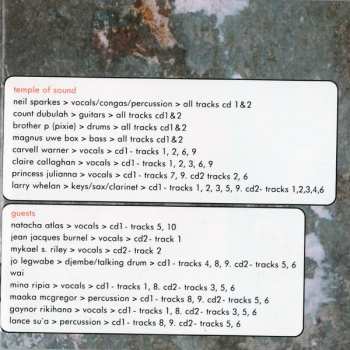 temple of sound
neil sparkes > vocals/congas/percussion > all tracks cd 1&2
count dubulah > guitars > all tracks cd1&2
brother p (pixie) > drums > all tracks cd1&2
magnus uwe box > bass > all tracks cd1&2
carvell warner > vocals > cd1- tracks 1, 2, 6, 9
claire callaghan > vocals > cd1- tracks 1, 2, 3, 6, 9
princess julianna > vocals > cd1- tracks 7, 9. cd2 tracks 2, 6
larry whelan > keys/sax/clarinet > cd1- tracks 1, 2, 3, 5, 9. cd2- tracks 1,2,3,4,6
guests
natacha atlas > vocals > cd1- tracks 5, 10
jean jacques burnel > vocals > cd2- track 1
mykael s. riley > vocals > cd2- track 2
jo legwabe > djembe/talking drum > cd1- tracks 4, 8, 9. cd2- tracks 5, 6
wai
mina ripia > vocals > cd1- tracks 1, 8. cd2- tracks 3, 5, 6
maaka mcgregor > percussion > cd1- tracks 8, 9. cd2- tracks 5, 6
gaynor rikihana > vocals > cd1- tracks 1, 8. cd2- tracks 3, 5, 6
lance su'a > percussion > cd1- tracks 8, 9. cd2- tracks 5, 6